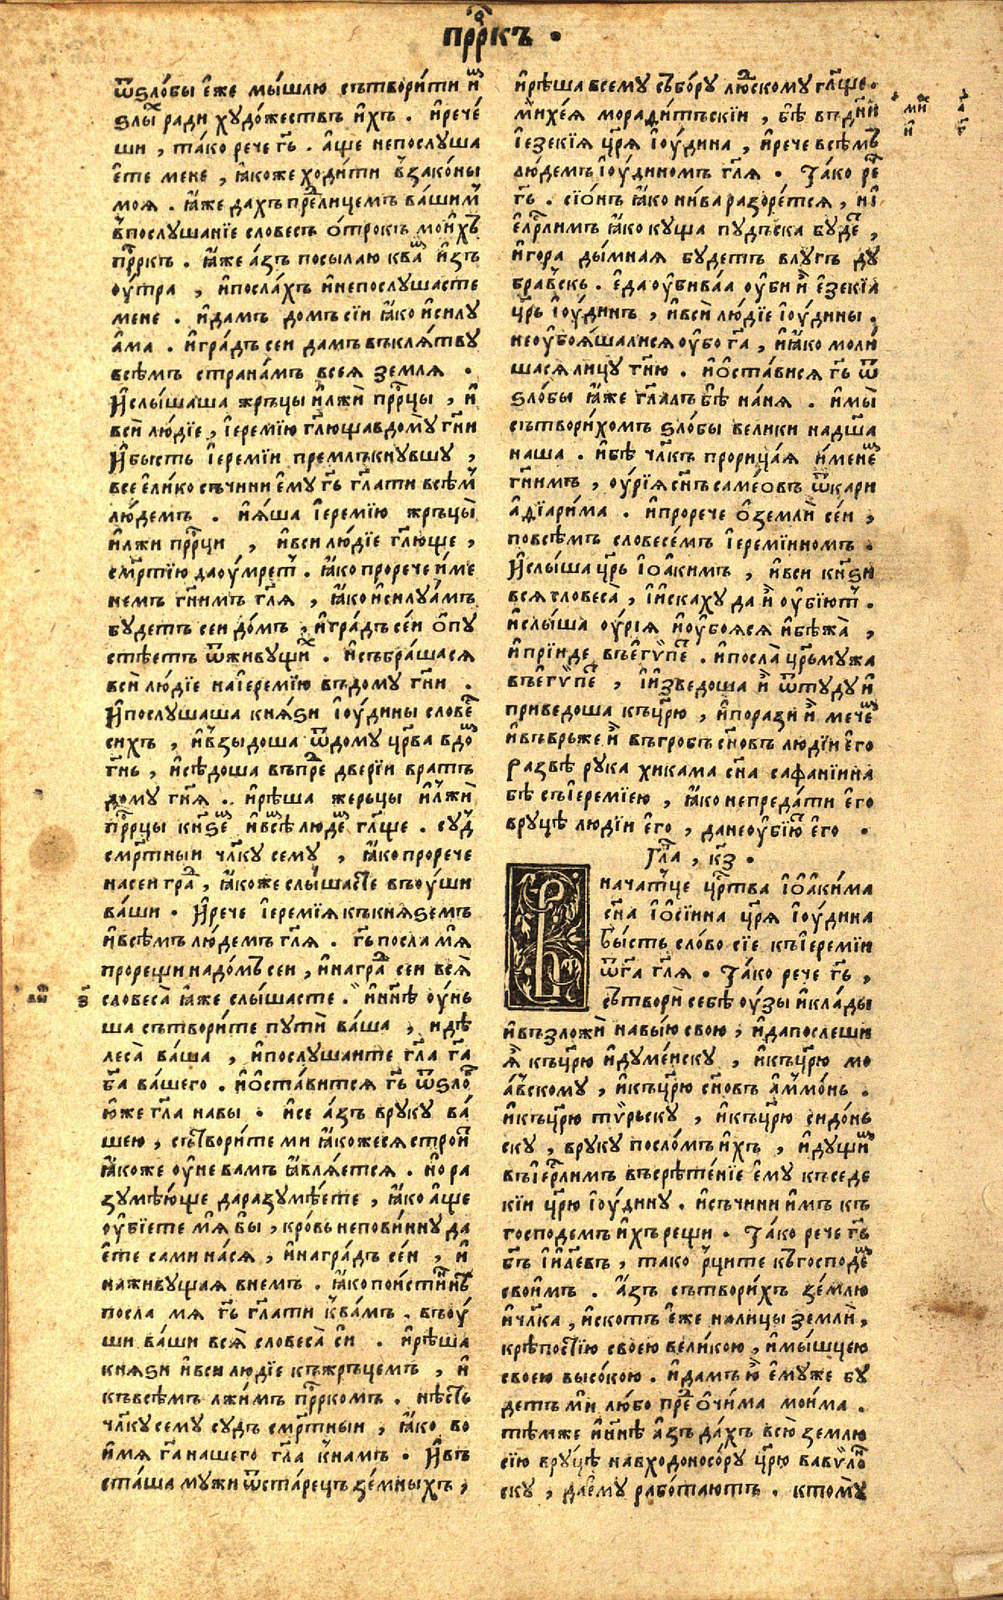 прⷪ҇ркъ ·
ѿѕло́бы є҆́же мы́шлю сътвори́ти и҆̀ⷨ
ѕлы̏ⷯ ради худо́жествъ и҆́хъ . и҆рече́
ши , та́ко рече г҃ь . а҆́ще непослуша
є҆те мене , ꙗ҆́коже ходи́ти в҆зако́ны
моѧ . ꙗ҆́же дахъ преⷣлицемъ ва́шимⸯ
в҆послуша́нїе словесъ о҆трокъ мои҆́хъ
прⷪ҇ркъ . ꙗ҆́же а҆́зъ посылаю ква́ⷨ и҆зъ
оу҆́тра , и҆посла́хъ и҆непослушасте
мене . и҆дамъ домъ сїи ꙗ҆́ко и҆силу
а҆ма . и҆гра́дъ сеи дамъ въклѧ́тву
всѣ́мъ страна́мъ всеѧ землѧ .
И҆слы́шаша жръцы и҆лжи́ прⷪ҇рцы , и҆
вси́ лю́дїе , і҆еремі́ю гл҃юща вдо́му гн҃и
И҆бысть і҆еремі́и премлъкнувшу ,
все є҆ли́ко съчини є҆му г҃ь гл҃ати всѣ́мⸯ
лю́демъ . и҆ѧ́ша і҆еремі́ю жръцы̀
и҆лжи прⷪ҇рци , и҆вси лю́дїе гл҃юще ,
сме́ртїю да оу҆́мретⸯ . ꙗ҆́ко прорече и҆́ме
немъ гн҃имъ гл҃ѧ , ꙗ҆́ко и҆силуа́мъ
будетъ сеи до́мъ , и҆гра́дъ се́и о҆пу
стѣетъ ѿживущиⷯ . и҆събра́шасѧ
вси́ лю́дїе на і҆еремі́ю въдому гн҃и .
И҆послушаша кнѧ́ѕи і҆ю́дины слове́ⷭ
сихъ , и҆в҆зыдоша ѿдому цр҃ва вдоⷨ
гн҃ь , и҆сѣдоша въпреⷣ две́рїи вратъ
дому гн҃ѧ . и҆рѣша жерьцы и҆л҆жи́
прⷪ҇рцы кнѕеⷨ и҆всѣⷨ людеⷨ гл҃ще . судⸯ
сме́ртныи чл҃ку сему , ꙗ҆́ко прорече
насеи граⷣ , ꙗ҆́коже слы́шасте въоу҆́ши
ва́ши . И҆рече і҆еремі́ѧ къкнѧѕемъ
и҆всѣ́мъ лю́демъ гл҃ѧ . г҃ь посла мѧ̀
прорещи надо́мъ сеи , и҆награⷣ сеи всѧ̀
словеса̀ ꙗ҆́же слы́шасте . и҆ нн҃ѣ оу҆́нь
ша сътвори́те путѝ ва́ша , и дѣ
леса̀ ва́ша , и҆послушаите гл҃а г҃а
б҃а ва́шего . и҆о҆ста́витсѧ г҃ь ѿѕлоⷠ
ю҆́же гл҃а навы . и҆се а҆́зъ вруку ва́
шею , сътвори́те ми ꙗ҆́кожесѧ строи҆ⷮ
ꙗ҆́коже оу҆́не вамъ ꙗ҆влѧетсѧ . но ра
зумѣ́юще даразумѣ́ете , ꙗ҆́ко а҆́ще
оу҆бїе́те мѧ̀ бы̀ , кро́вь непови́нну да
є҆те сами на́сѧ , и҆награ́дъ се́и , и҆
наживущаѧ внемъ . ꙗ҆́ко пои҆́стиннѣ
посла мѧ г҃ь гл҃ати к҆ва́мъ . въоу҆́
ши ва́ши всѧ̀ словеса̀ си̑ . и҆рѣ́ша
кнѧѕи и҆вси людїе къжръцемъ , и҆
къвсѣ́мъ лжи́мъ прⷪ҇ркомъ . нѣ́сть
чл҃ку сему судъ сме́ртныи , ꙗ҆́ко во
и҆́мѧ г҃а нашего гл҃а к҆намъ . И҆въ
ста́ша мужи ѿста́рецъ зе́мныхъ ,
и҆рѣ́ша всему събо́ру люⷣскому гл҃ще .
ми҆хе́ѧ морадитъскїи , бѣ̀ въдн҃и
і҆езекі́ѧ цр҃ѧ і҆ю́дина , и҆рече всѣ́мъ
лю́демъ і҆ю́диномъ гл҃ѧ . Та́ко реⷱ
г҃ь . сїо́нъ ꙗ҆́ко ни́ва разоре́тсѧ , и і҆
є҆рл҃имъ ꙗ҆́ко куща пудъска будеⷮ ,
и҆гора дымнаѧ будетъ влугъ ду
бра́вскъ . є҆да оу҆бива́ѧ оу҆би и҆̀ є҆зекі́ѧ
цр҃ь і҆ю́динъ , и҆всѝ лю́дїе і҆ю́дины .
неоу҆боѧ́шалисѧ оу҆бо г҃а , и҆ꙗ҆́ко моли
шасѧ лицу гн҃ю . и҆о҆ста́висѧ г҃ь ѿ
ѕло́бы ꙗ҆́же гл҃алъ бѣ̀ на́нѧ . и҆мы̀
сътвори́хомъ ѕло́бы велики надш҃а
наша . и҆бѣ̀ чл҃къ прорица́ѧ и҆́менеⷨ
гн҃имъ , оу҆рі́ѧ сн҃ъ саме́овъ ѿкари
адїари́ма . и҆прорече о҆землѝ се́и ,
повсѣ́мъ словесе́мъ і҆еремі́инномъ .
И҆слы́ша цр҃ь і҆оа҆кимъ , и҆вси кн҃ѕи
всѧ словеса̀ , і҆и҆скаху да и҆̀ оу҆бїютⸯ .
и҆слы́ша оу҆рі́ѧ и҆оу҆боѧсѧ и҆бѣжа̀ ,
и҆прїиде въе҆гѵ́пеⷮ . и҆посла̀ цр҃ь мужа
въе҆гѵ́пеⷮ , і҆и҆зведоша и҆̀ ѿтуду и҆
приведоша къцр҃ю , и҆порази и҆̀ мече́ⷨ
и҆въвръже и҆̀ въгробъ сн҃овъ людїи є҆го
развѣ рука хикама сн҃а сафані́инна
бѣ̀ съі҆еремі́ею , ꙗ҆́ко непреда́ти є҆го
вруцѣ людїи є҆го , данеоу҆бїю́ⷮ є҆го .
Гл҃а , к҃з .
В
начатцѣ цр҃тва і҆оа҆ки́ма
сн҃а і҆о҆сі́инна цр҃ѧ і҆ю́дина
бы́сть сло́во сїе къі҆еремі́и
ѿг҃а гл҃ѧ . Та́ко рече г҃ь ,
сътворѝ себѣ̀ оу҆́зы и҆кла́ды
и҆възложѝ навы́ю свою , и҆дапослеши
ѧ҆̀ къцр҃ю и҆думе́иску , и҆къцр҃ю мо
а҆́вскому , и҆къцр҃ю сн҃овъ а҆мⸯмо́нь .
и҆къцр҃ю тѵ́рьску , и҆къцр҃ю сидо́нь
ску , вруку посло́мъ и҆́хъ , и҆дущиⷨ
въі҆ер҃лимъ въсрѣте́нїе є҆му къседе
кі́и цр҃ю і҆ю́дину . и҆съчини и҆̀мъ къ
господемъ и҆́хъ рещи . Та́ко рече г҃ь
б҃ъ і҆и҃левъ , тако рцⸯите къгосподеⷨ
свои҆мъ . А҆́зъ сътвори́хъ зе́млю
и҆чл҃ка , и҆скотъ є҆́же налицы землѝ ,
крѣ́постїю своею вели́кою , и҆мы́шцею
своею высо́кою . и҆дамъ ю҆̀ є҆муже бу
детъ ми̑ лю́бо преⷣ о҆чи́ма мои́ма .
тѣмже и҆ нн҃ѣ а҆́зъ да́хъ всю̀ землю
сїю вруцѣ̀ навходоносо́ру цр҃ю вавѵ́лоⷩ
ску , дає҆му рабо́таютъ . ктому